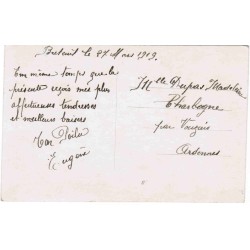 Breteuil le 27 Mars 1919.
En même temps que la
présente reçois mes plus
affectueuses tendresses
et meilleurs baisers
Ton Poilu
Eugène
Mlle Dupas Madeleine
Charbogne
par Vouziers
Ardennes